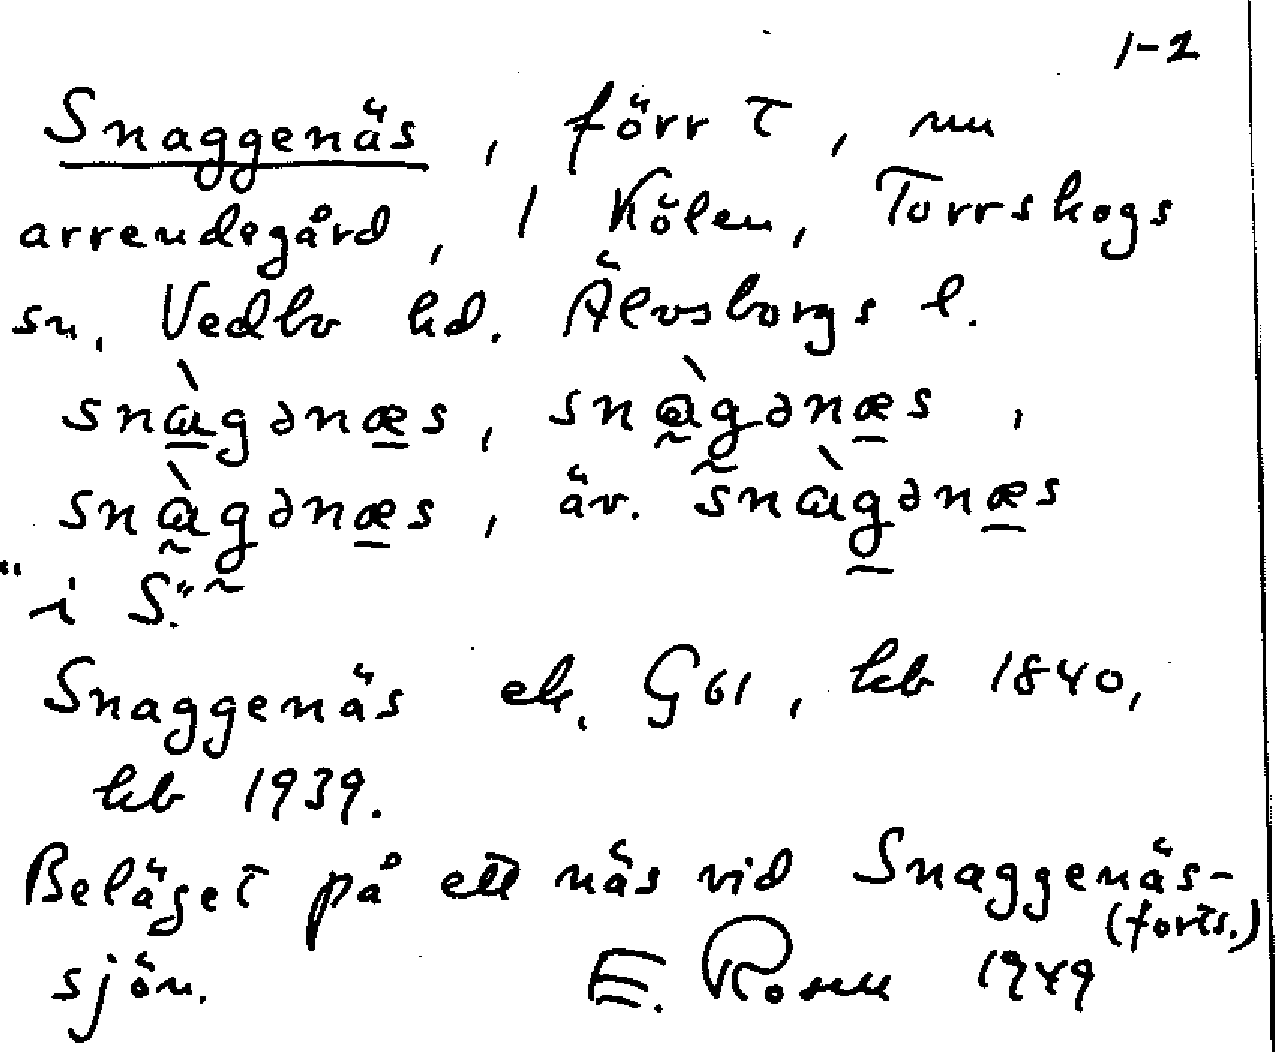 1-2
Snaggenäs, förr t, nu
arrendegård, 1 Kölen, Torrskogs
sn, Vedbo hd. Älvsborgs l.
snɑ̀gənæs, snɑ̀gənæs,
snɑ̀gənæs, äv. snɑ̀gənæs
"i S."
Snaggenäs ek. G61, kb 1840,
kb 1939.
Beläget på ett näs vid Snaggenäs-
(forts.)
sjön. E. Rosell 1949